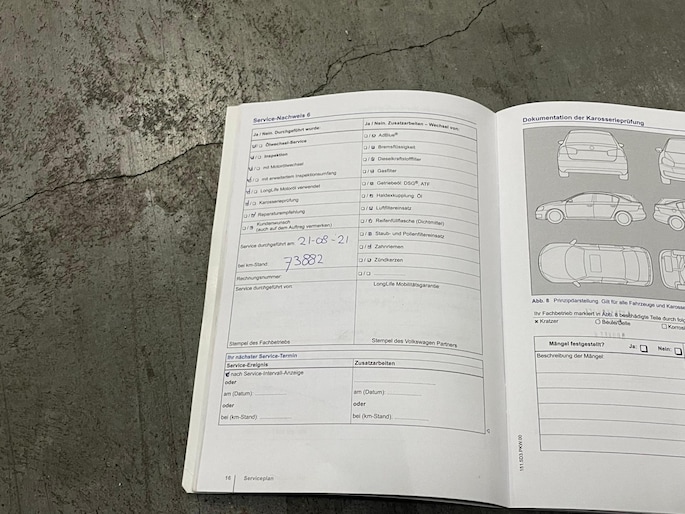 Service-Nachweis 6
Ja / Nein. Durchgeführt wurde:
Ölwechsel-Service
Inspektion
mit Motorölwechsel
mit erweitertem Inspektionsumfang
LongLife Motoröl verwendet
Karosserieprüfung
Reparaturempfehlung
Kundenwunsch
(auch auf dem Auftrag vermerken)
Service durchgeführt am: 21-08-21
bei km-Stand: 73882
Rechnungsnummer:
Service durchgeführt von:
Stempel des Fachbetriebs
Ja / Nein. Zusatzarbeiten – Wechsel von:
AdBlue®
Bremsflüssigkeit
Dieselkraftstofffilter
Gasfilter
Getriebeöl: DSG®, ATF
Haldexkupplung: Öl
Luftfiltereinsatz
Reifenfüllflasche (Dichtmittel)
Staub- und Pollenfiltereinsatz
Zahnriemen
Zündkerzen
LongLife Mobilitätsgarantie
Stempel des Volkswagen Partners
Ihr nächster Service-Termin
Service-Ereignis
Zusatzarbeiten
nach Service-Intervall-Anzeige
oder
am (Datum)
am (Datum)
oder
oder
bei (km-Stand)
bei (km-Stand)
16 Serviceplan
Dokumentation der Karosserieprüfung
Abb. 8 Prinzipdarstellung. Gilt für alle Fahrzeuge und Karosse
Ihr Fachbetrieb markiert in Abb. 8 beschädigte Teile durch fol
x Kratzer Beule/Delle
Mängel festgestellt? Ja: Nein:
Beschreibung der Mängel: